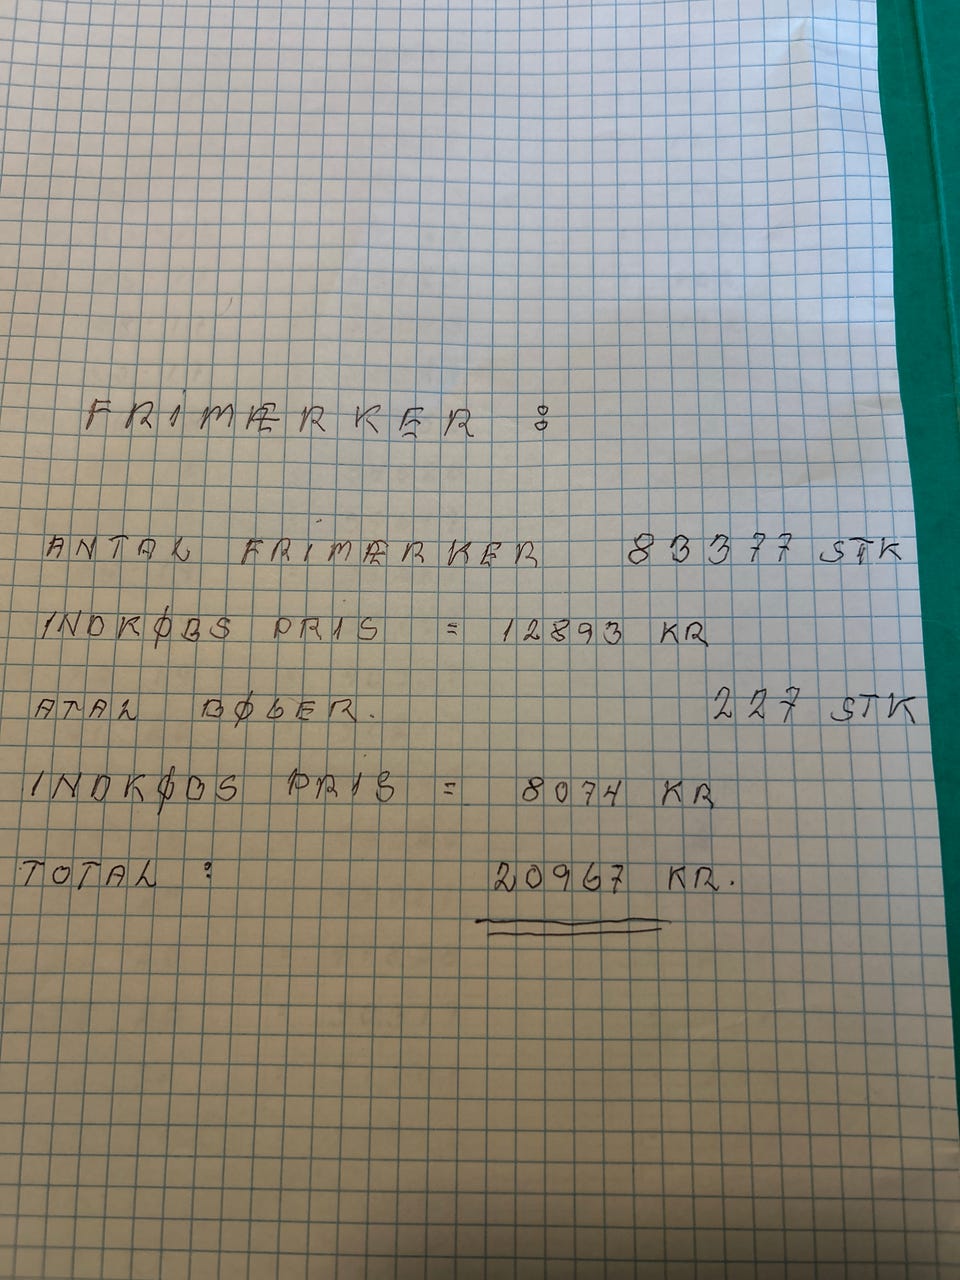 FRIMÆRKER :
ANTAL FRIMÆRKER 83377 STK
INDKØBS PRIS = 12893 KR
ATAL BØGER. 227 STK
INDKØBS PRIS = 8074 KR
TOTAL : 20967 KR.